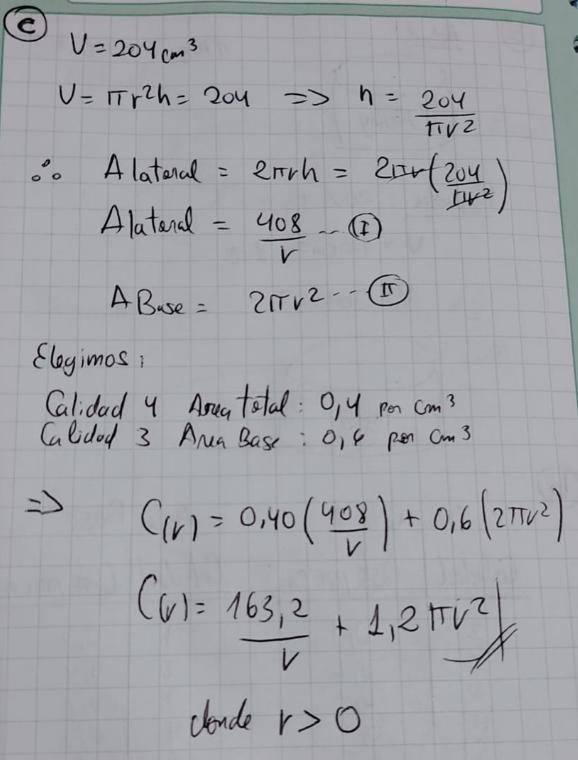 C
V = 204 cm³
V = πr²h = 204 => h = 204/πr²
∴ A lateral = 2πrh = 2πr(204/πr²)
A lateral = 408/r ... (I)
A Base = 2πr² ... (II)
Elegimos:
Calidad 4 Area total : 0,4 por cm³
Calidad 3 Area Base : 0,6 por cm³
=> C(r) = 0,40(408/r) + 0,6(2πr²)
C(r) = 163,2/r + 1,2πr²
donde r > 0